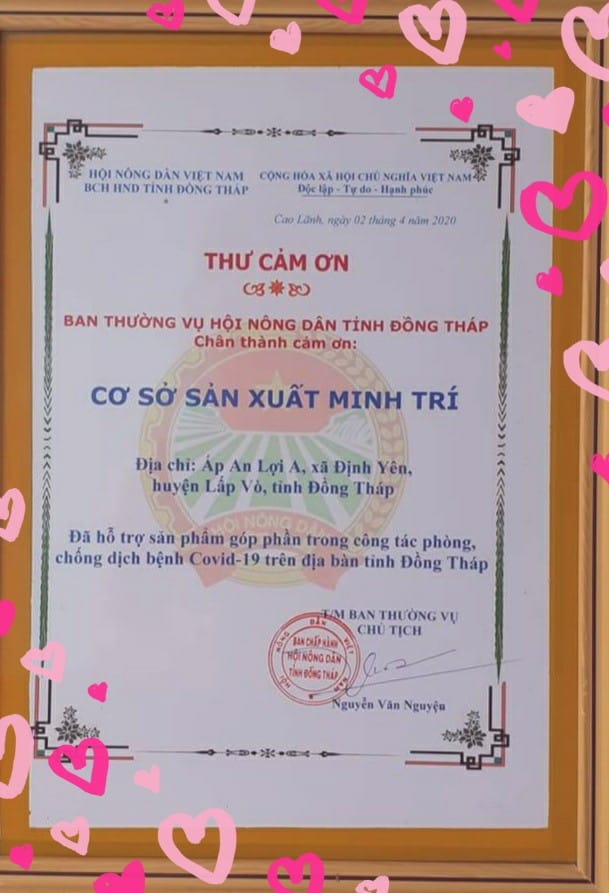 HỘI NÔNG DÂN VIỆT NAM
BCH HND TỈNH ĐỒNG THÁP
CỘNG HÒA XÃ HỘI CHỦ NGHĨA VIỆT NAM
Độc lập - Tự do - Hạnh phúc
Cao Lãnh, ngày 02 tháng 4 năm 2020
THƯ CẢM ƠN
BAN THƯỜNG VỤ HỘI NÔNG DÂN TỈNH ĐỒNG THÁP
Chân thành cảm ơn:
CƠ SỞ SẢN XUẤT MINH TRÍ
Địa chỉ: Ấp An Lợi A, xã Định Yên,
huyện Lấp Vò, tỉnh Đồng Tháp
HỘI NÔNG DÂN
Đã hỗ trợ sản phẩm góp phần trong công tác phòng,
chống dịch bệnh Covid-19 trên địa bàn tỉnh Đồng Tháp
T/M BAN THƯỜNG VỤ
CHỦ TỊCH
HỘI NÔNG DÂN VIỆT NAM
BAN CHẤP HÀNH
HỘI NÔNG DÂN
TỈNH ĐỒNG THÁP
Nguyễn Văn Nguyện